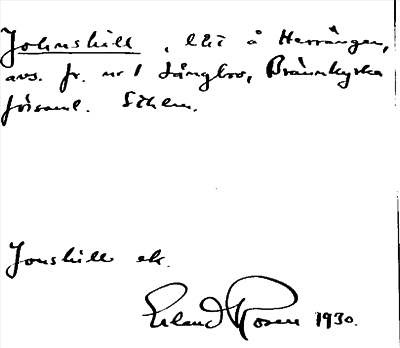 Johnshill, lht å Herrängen,
avs. fr. nr 1 Långbro, Brännkyrka
församl. Sthlm.
Jonshill ek.
Erland Rosell 1930.